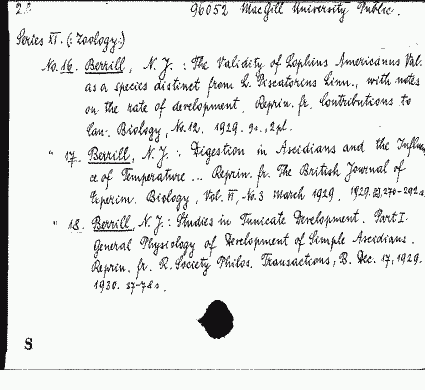 2.8. 96052 MacGill University Public.
Series XI. (: Zoology.)
No. 16. Berrill, N. J. : The Validity of Lophius Americanus Val.
as a species distinct from L. Piscatorius Linn., with notes
on the rate of development. Reprin. fr. Contributions to
Can. Biology, No. 12, 1929. 9 s., 2 pl.
" 17. Berrill, N. J. : Digestion in Ascidians and the Influen
ce of Temperature ... Reprin. fr. The British Journal of
Experim. Biology, Vol. VI, No. 3 March 1929. 1929. 270-292 s.
" 18. Berrill, N. J. : Studies in Tunicate Development. Part I.
General Physiology of Development of Simple Ascidians.
Reprin. fr. R. Society Philos. Transactions, B. Dec. 17, 1929.
1930. 37-78 s.
S